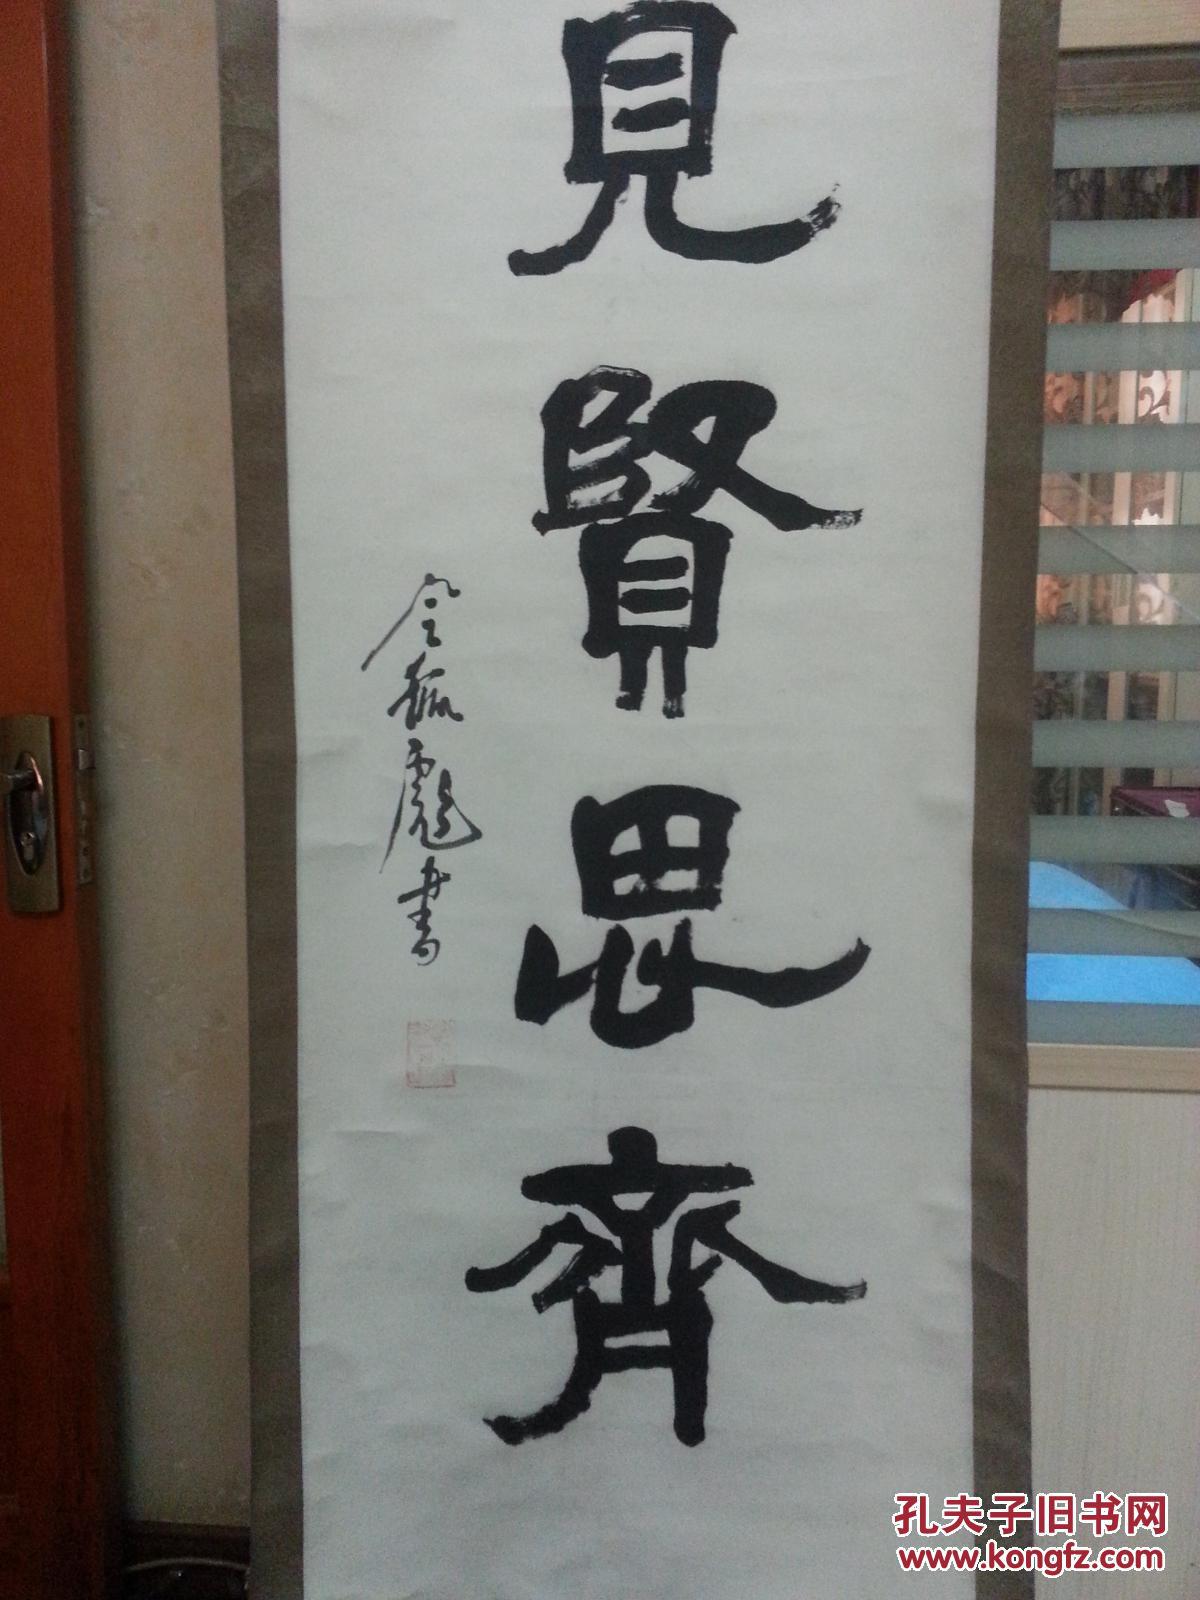 見賢思齊
令狐彪書
孔夫子旧书网
www.kongfz.com